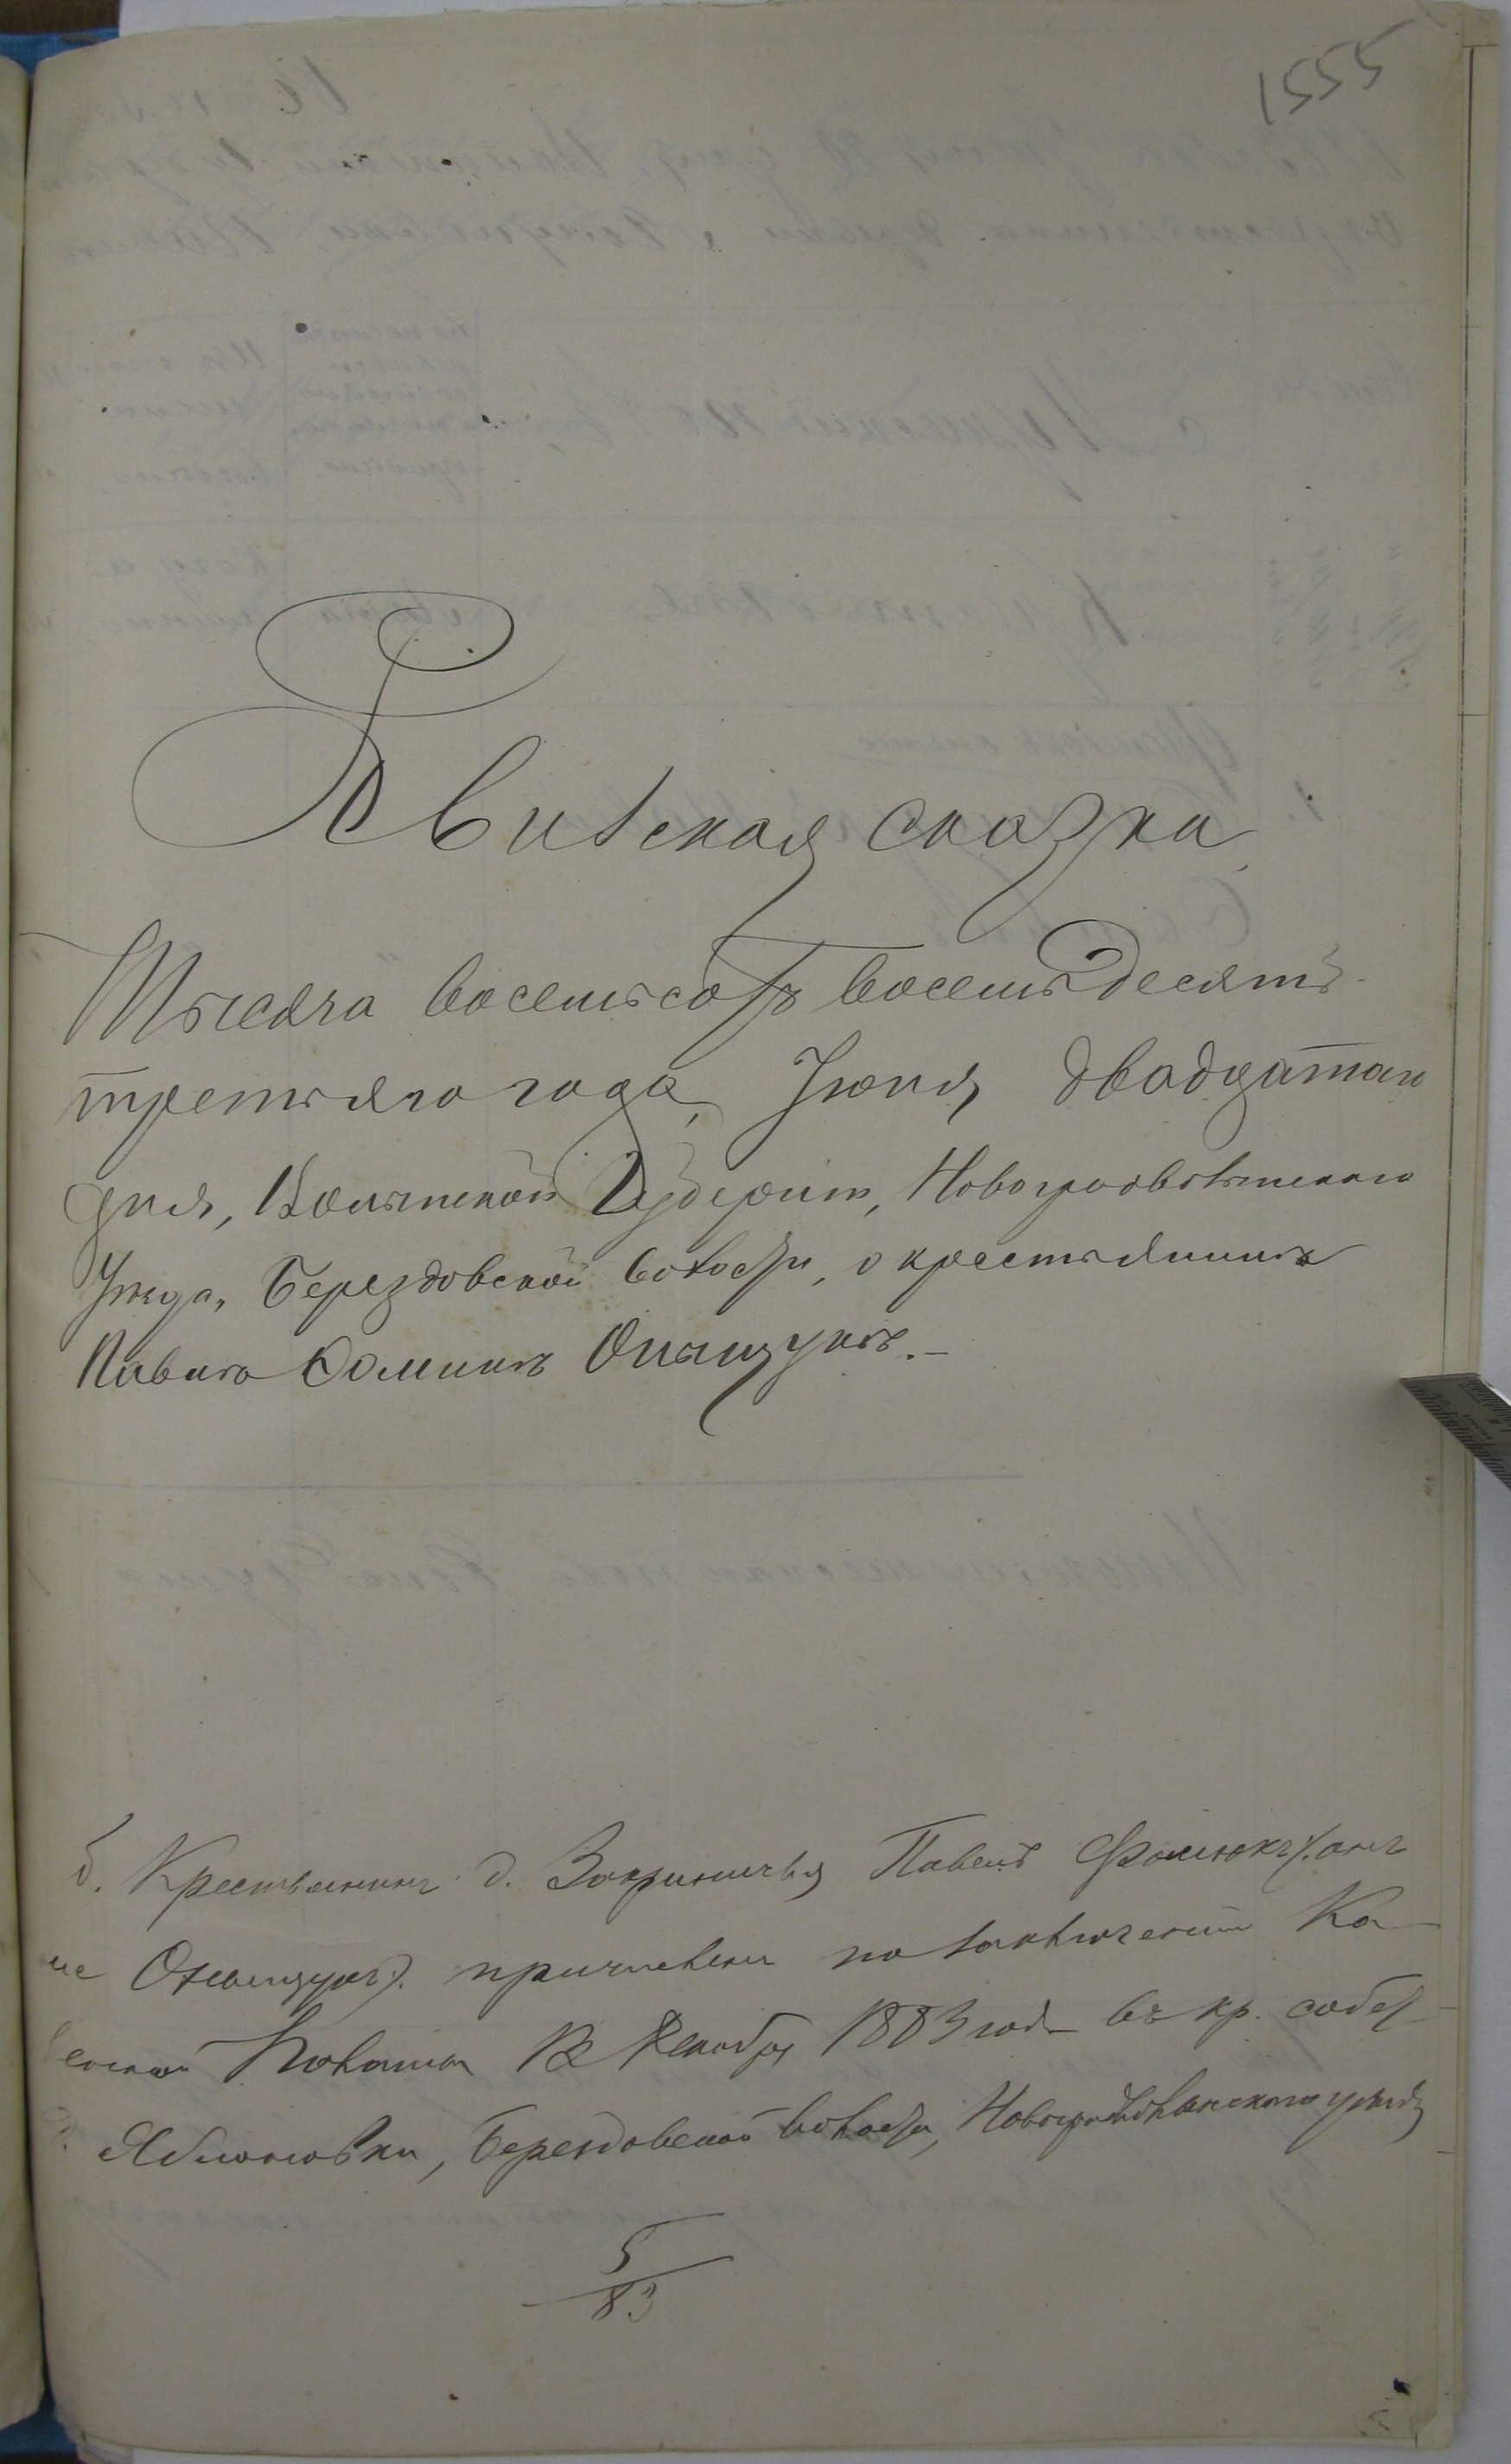 1555
Ревизская сказка
Тысяча восемьсотъ восемьдесятъ
третьяго года, Іюня двадцатаго
дня, Волынской Губерніи, Новоградволынскаго
Уѣзда, Берездовской волости, о крестьянинѣ
Павлѣ Ѳоминѣ Онищукѣ.—
б. Крестьянинъ д. Павелъ
Онищукъ). причисленъ по заключенію Ка-
Палаты 12 Декабря 1883 года въ кр. собст
Яблоновки, Берездовской волости, Новоградволынскаго уѣзда
5
83